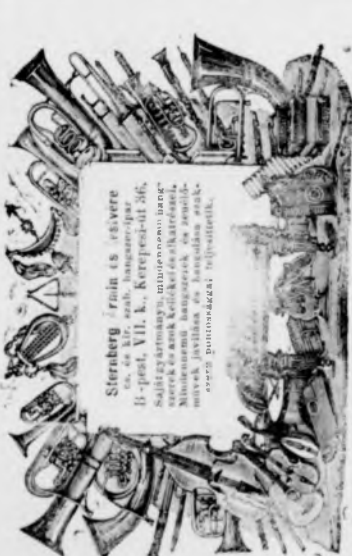 Sternberg Ármin és testvére
cs. és kir. szab. hangszeripar
B-pest, VII. k., Kerepesi-út 36.
Saját gyártmányú, mindennemü hang-
szerek és azok kellékei és alkatrészei.
Mindennemü hangszerek és zenélő-
müvek javítása és hangolása szak-
szerü pontossággal teljesíttetik.